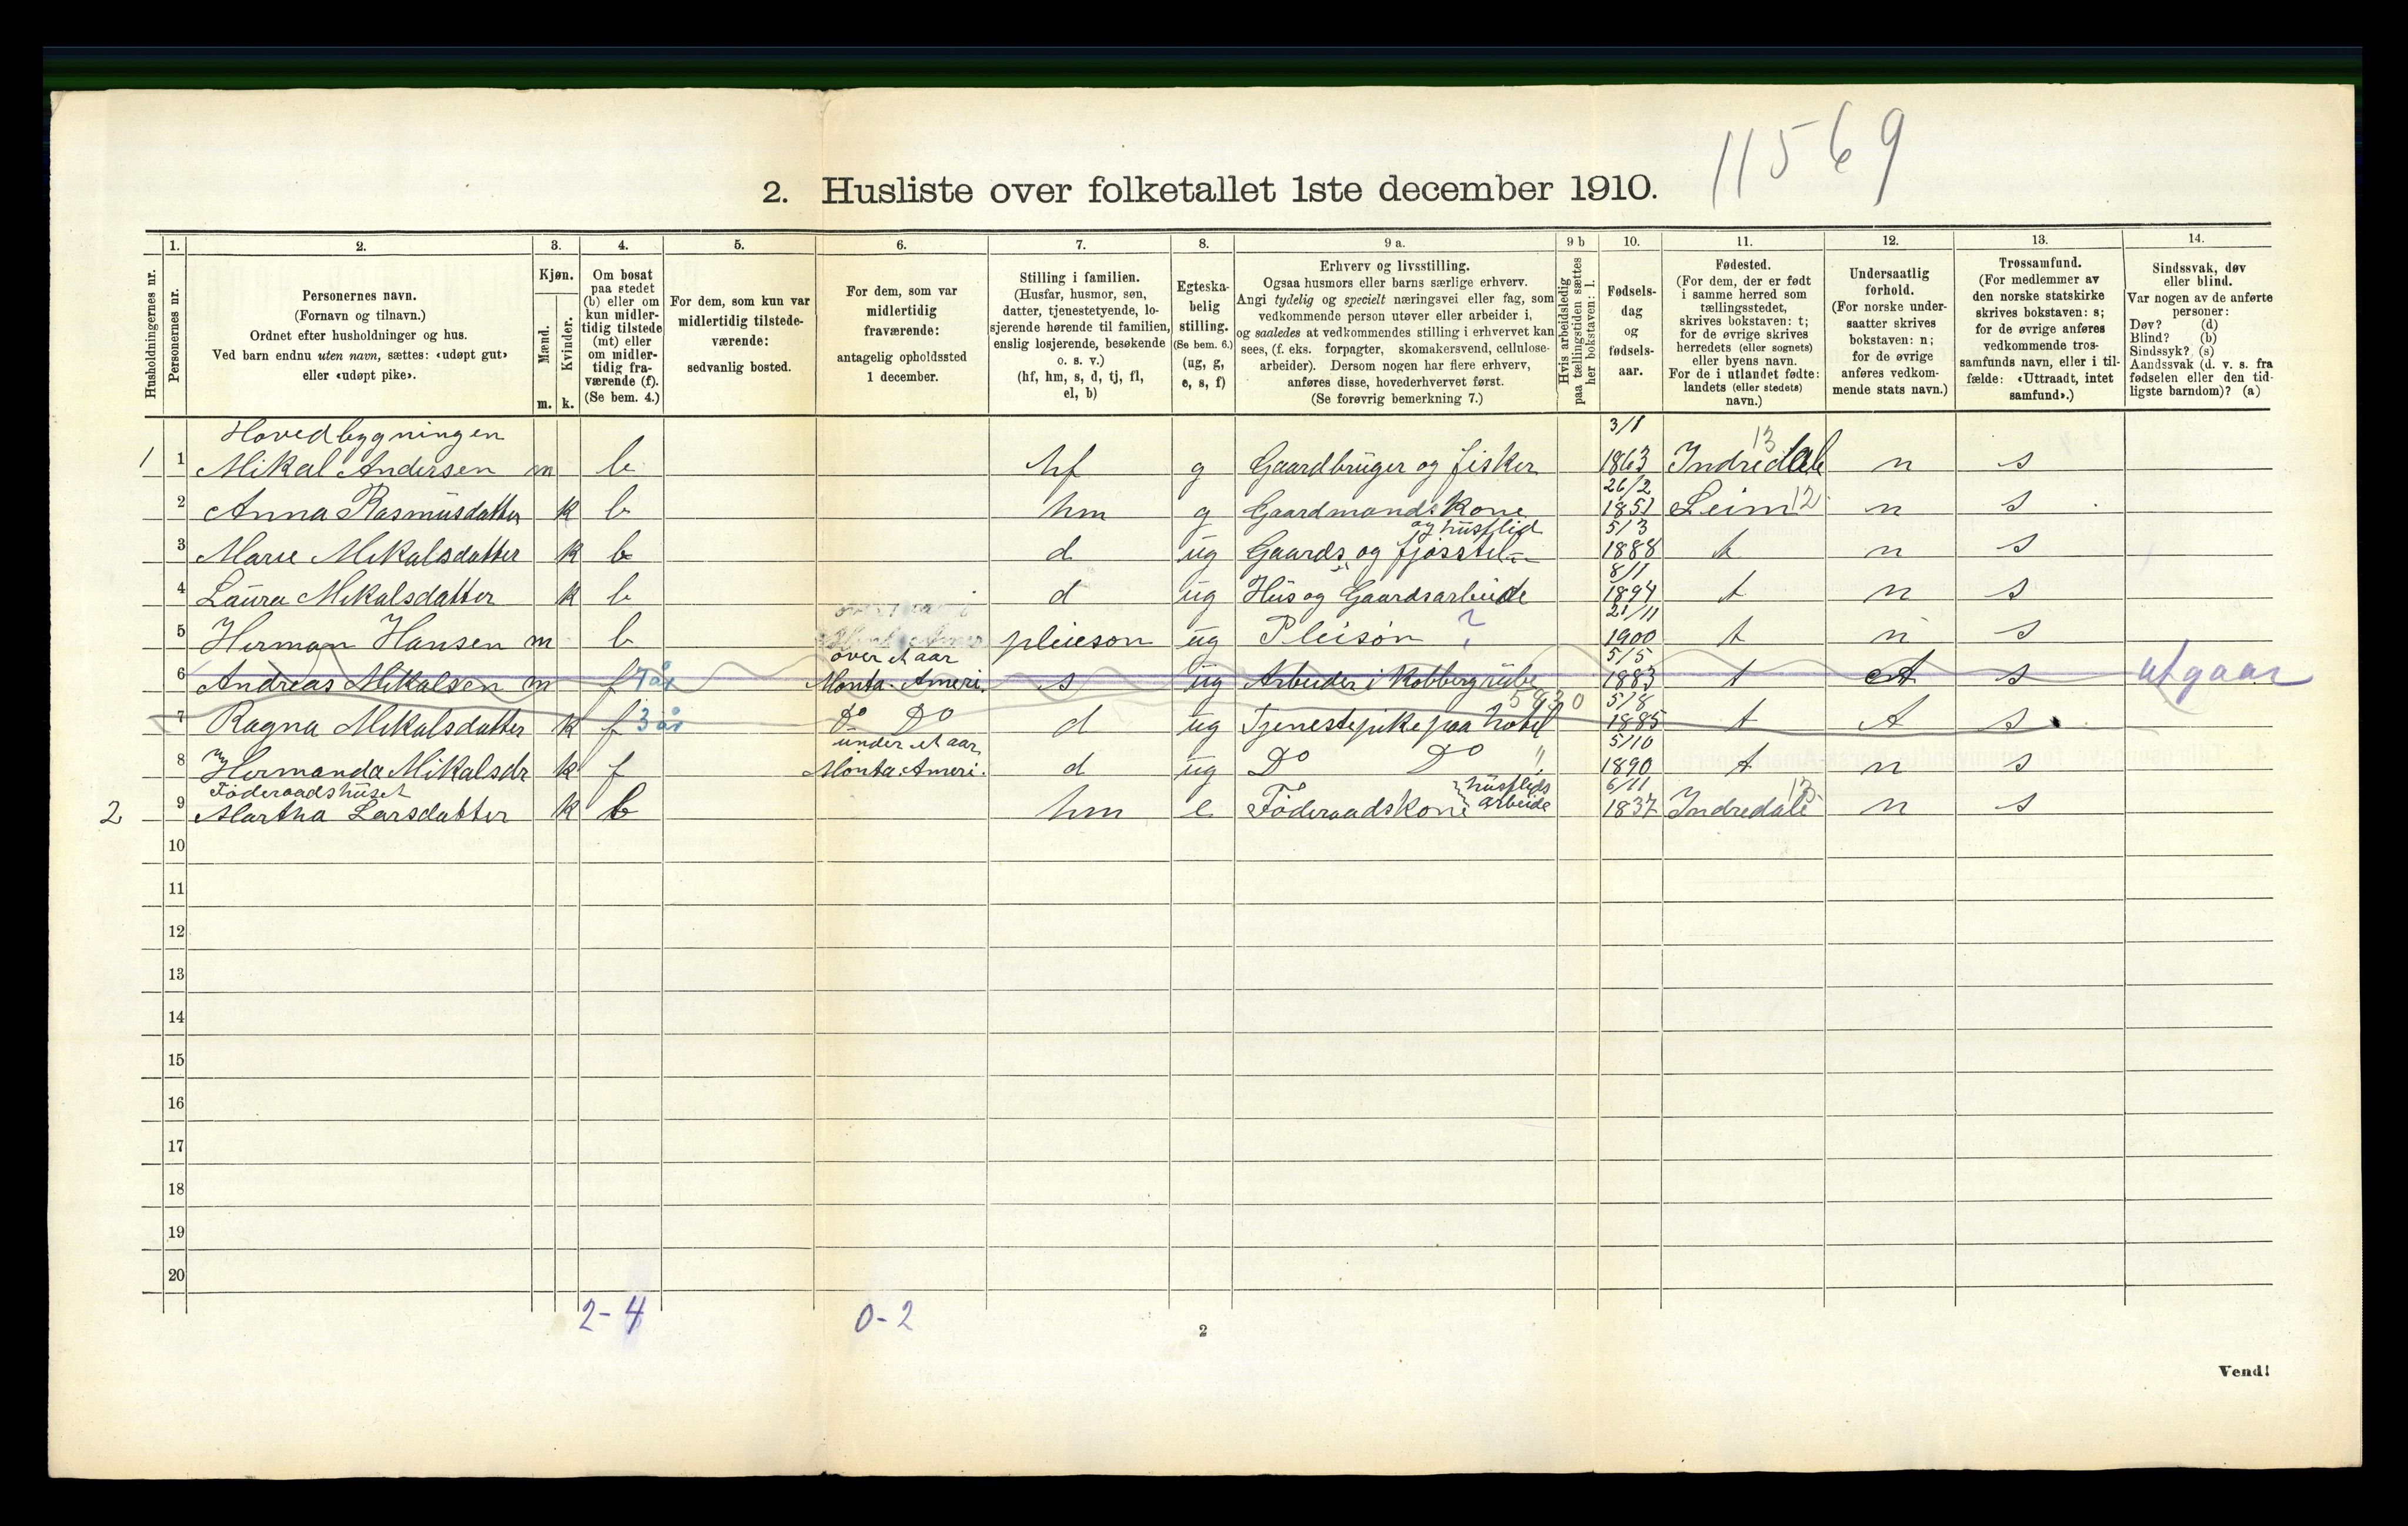 11569
2. Husliste over folketallet 1ste december 1910.
Husholdningernes nr.
1.
Personernes nr.
2.
Personernes navn.
(Fornavn og tilnavn.)
Ordnet efter husholdninger og hus.
Ved barn endnu uten navn, sættes: «udøpt gut»
eller «udøpt pike».
3.
Kjøn.
Mænd.
Kvinder.
m. k.
4.
Om bosat
paa stedet
(b) eller om
kun midler-
tidig tilstede
(mt) eller
om midler-
tidig fra-
værende (f).
(Se bem. 4.)
5.
For dem, som kun var
midlertidig tilstede-
værende:
sedvanlig bosted.
6.
For dem, som var
midlertidig
fraværende:
antagelig opholdssted
1 december.
7.
Stilling i familien.
(Husfar, husmor, søn,
datter, tjenestetyende, lo-
sjerende hørende til familien,
enslig losjerende, besøkende
o. s. v.)
(hf, hm, s, d, tj, fl,
el, b)
8.
Egteska-
belig
stilling.
(Se bem. 6.)
(ug, g,
e, s, f)
9 a.
Erhverv og livsstilling.
Ogsaa husmors eller barns særlige erhverv.
Angi tydelig og specielt næringsvei eller fag, som
vedkommende person utøver eller arbeider i,
og saaledes at vedkommendes stilling i erhvervet kan
sees, (f. eks. forpagter, skomakersvend, cellulose-
arbeider). Dersom nogen har flere erhverv,
anføres disse, hovederhvervet først.
(Se forøvrig bemerkning 7.)
9 b
Hvis arbeidsledig
paa tællingstiden sættes
her bokstaven: l.
10.
Fødsels-
dag
og
fødsels-
aar.
11.
Fødested.
(For dem, der er født
i samme herred som
tællingsstedet,
skrives bokstaven: t;
for de øvrige skrives
herredets (eller sognets)
eller byens navn.
For de i utlandet fødte:
landets (eller stedets)
navn.)
12.
Undersaatlig
forhold.
(For norske under-
saatter skrives
bokstaven: n;
for de øvrige
anføres vedkom-
mende stats navn.)
13.
Trossamfund.
(For medlemmer av
den norske statskirke
skrives bokstaven: s;
for de øvrige anføres
vedkommende tros-
samfunds navn, eller i til-
fælde: «Uttraadt, intet
samfund».)
14.
Sindssvak, døv
eller blind.
Var nogen av de anførte
personer:
Døv? (d)
Blind? (b)
Sindssyk? (s)
Aandssvak (d. v. s. fra
fødselen eller den tid-
ligste barndom)? (a)
Hovedbygningen 3/1 13
1 1 Mikal Andersen m b hf g Gaardbruger og fisker 1863 Indredale n s
26/2
2 Anna Rasmusdatter k b hm g Gaardmandskone 1851 Leim 12 n s
og husflid 5/3
3 Marie Mikalsdatter k b d ug Gaards og fjøsstel 1888 t n s
8/11
4 Laura Mikalsdatter k b d ug Hus og Gaardsarbeide 1894 t n s
21/11
5 Herman Hansen m b pleieson ug Pleisøn ? 1900 t n s
over et aar 5/5
6 Andreas Mikalsen m f 7 år Monta. Ameri. s ug Arbeider i Kobbergrube 1883 t A s utgaar
5930 5/8
7 Ragna Mikalsdatter k f 3 år Do Do d ug Tjenestepike paa hotel 1885 t A s
under et aar 5/10
8 Hermanda Mikalsdr k f Monta. Ameri. d ug Do Do " 1890 t n s
Føderaadshuset husflids 6/11 13
2 9 Martha Larsdatter k b hm e Føderaadskone arbeide 1837 Indredale n s
10
11
12
13
14
15
16
17
18
19
20
2-4 0-2
2
Vend!